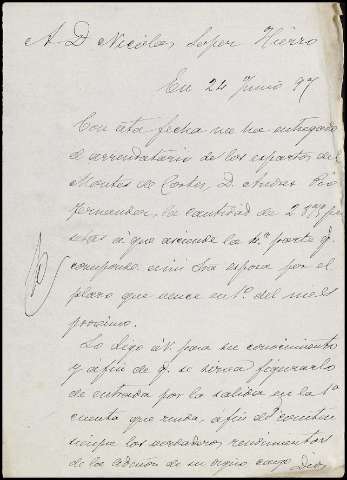 A D Nicolas Lopez Hierro
En 24 Junio 97
Con esta fecha me ha entregado
el arrendatario de los espartos del
Montes de Cortes, D. Andres
Fernandez, la cantidad de 2
setas á que asciende la parte q.
corresponde á mi Sra esposa por el
plazo que vence en 1º. del mes
proximo.
Lo digo á V. para su conocimiento
y á fin de q. se sirva figurarlo
de entrada por la salida en la 1ª
cuenta que rinda, á fin de
siempre los verdaderos rendimientos
de la admon de su digno cargo Dios